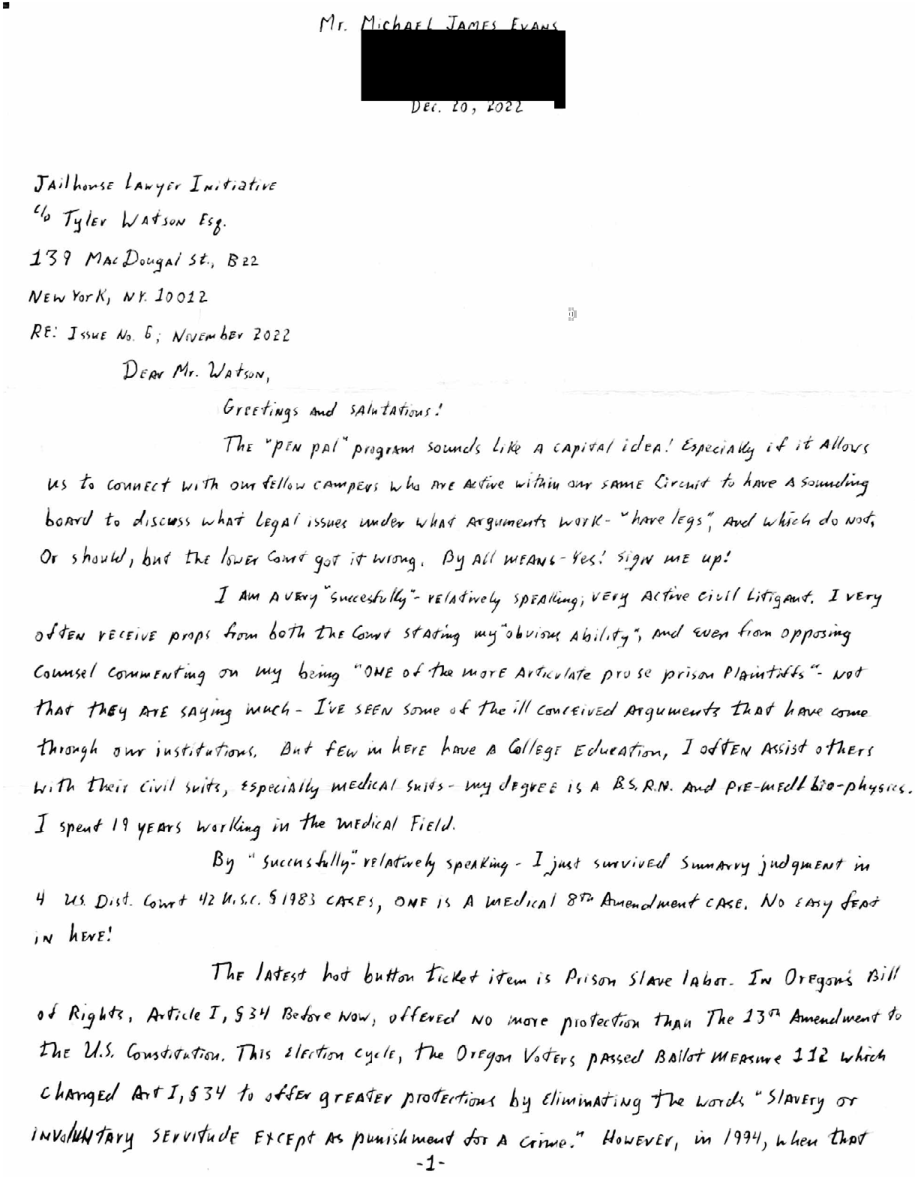 Mr. Michael James Evans
Dec. 20, 2022
Jailhouse Lawyer Initiative
c/o Tyler Watson Esq.
139 MacDougal St., B22
New York, NY. 10012
RE: Issue No. 6; November 2022
Dear Mr. Watson,
Greetings and salutations!
The "pen pal" program sounds like a capital idea! Especially if it allows
us to connect with our fellow campers who are active within our same Circuit to have a sounding
board to discuss what legal issues under what arguments work- "have legs", and which do not,
Or should, but the lower Court got it wrong. By all means- Yes! Sign me up!
I am a very "succesfully"- relatively speaking; very active civil litigant. I very
often receive props from both the Court stating my "obvious ability", and even from opposing
counsel commenting on my being "one of the more articulate pro se prison Plaintiffs"- not
that they are saying much- I've seen some of the ill conceived arguments that have come
through our institutions. But few in here have a College Education, I often assist others
with their civil suits, especially medical suits- my degree is a B.S.R.N. and pre-med/bio-physics.
I spent 19 years working in the medical field.
By "succesfully"- relatively speaking- I just survived summary judgment in
4 U.S. Dist. Court 42 U.S.C. § 1983 cases, one is a medical 8th Amendment case. No easy feat
in here!
The latest hot button ticket item is Prison Slave labor. In Oregon's Bill
of Rights, Article I, § 34 Before now, offered no more protection than The 13th Amendment to
the U.S. Constitution. This election cycle, the Oregon Voters passed Ballot Measure 112 which
changed Art I, § 34 to offer greater protections by eliminating the words "Slavery or
involuntary servitude except as punishment for a crime." However, in 1994, when that
-1-